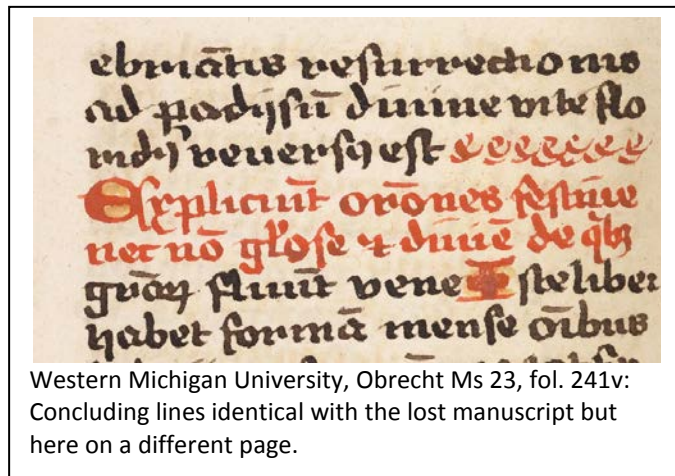 ebriātis resurrectionis
ad padysū divine vite flo
ridꝫ reversꝫ est
Expliciūt orōnes festive
nec nō glose ⁊ divīe de qͥbꝫ
grāꝝ fluūt vene Iste liber
habet formā mense oībus
Western Michigan University, Obrecht Ms 23, fol. 241v:
Concluding lines identical with the lost manuscript but
here on a different page.